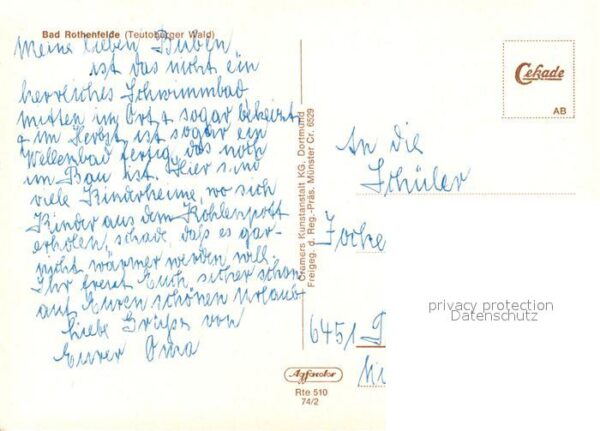 Bad Rothenfelde (Teutoburger Wald)
Meine lieben Buben,
ist das nicht ein
herrliches Schwimmbad
mitten im Ort + sogar beheizt
+ im Herbst ist sogar ein
Wellenbad fertig, das noch
im Bau ist. Hier sind
viele Kinderheime, wo sich
Kinder aus dem Kohlenpott
erholen, schade, daß es gar-
nicht wärmer werden will.
Ihr freut Euch sicher schon
auf Euren schönen Urlaub
Liebe Grüße von
Eurer Oma
Cramers Kunstanstalt KG, Dortmund
Freigeg. d. Reg.-Präs. Münster Cr. 6529
Agfacolor
Rte 510
74/2
Cekade
AB
An die
Schüler
6451
privacy protection
Datenschutz